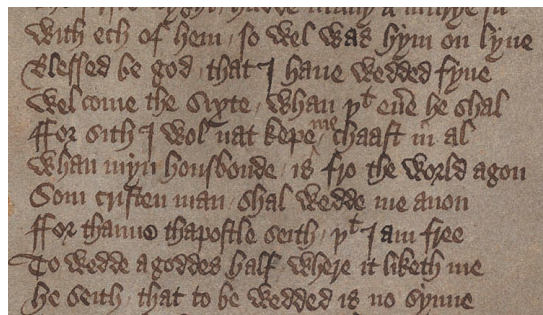 nyght / hadde many a murye fit
With ech of hem / so wel was hym on lyue
Blessed be god / that I haue wedded fyue
Wel come the sixte / whan þᵗ eu̅e he shal
ffor sith I wol nat kepe me chaast in al
Whan myn housbonde / is fro the world agon
Som cristen man / shal wedde me anon
ffor thanne thapostle seith / þᵗ I am free
To wedde a goddes half / where it liketh me
he seith / that to be wedded is no synne